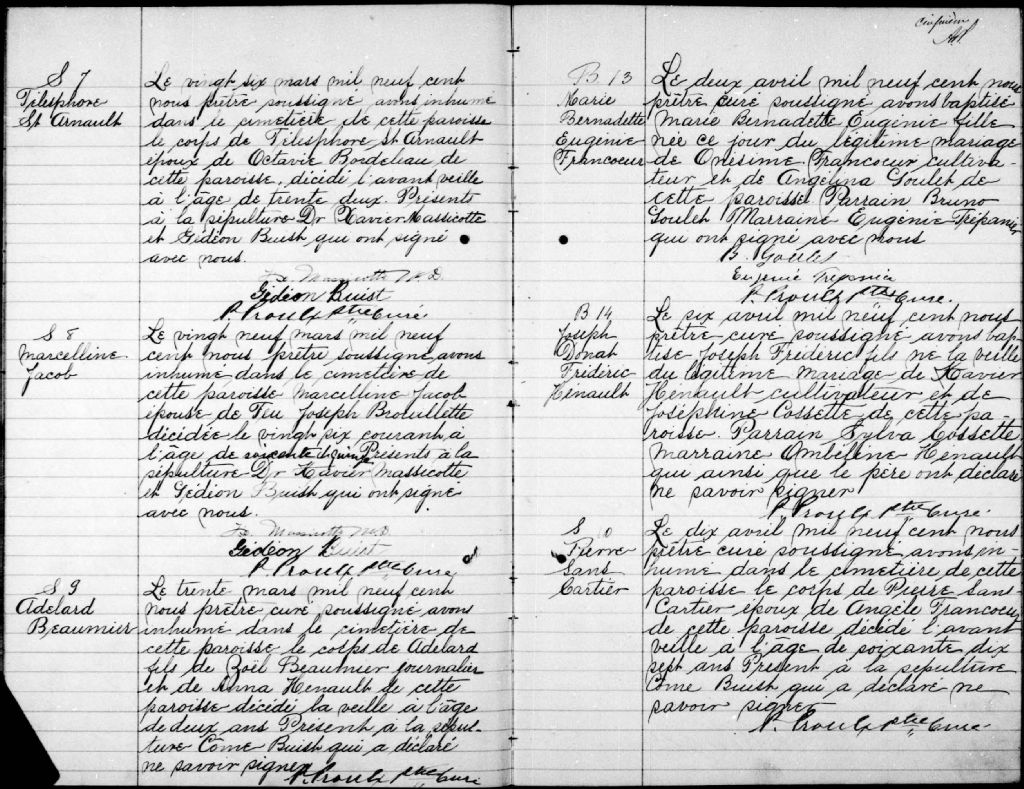 S 7
Télesphore
St Arnault
Le vingt six mars mil neuf cent
nous prêtre soussigné avons inhumé
dans le cimetière de cette paroisse
le corps de Télesphore St Arnault
époux de Octavie Bordeleau de
cette paroisse, décédé l'avant veille
à l'âge de trente deux. Présents
à la sépulture Dr Xavier Massicotte
et Gédéon Buist qui ont signé
avec nous.
Massicotte M.D.
Gédéon Buist
P. Proulx ptre Curé
S 8
Marcelline
Jacob
Le vingt neuf mars mil neuf
cent nous prêtre soussigné avons
inhumé dans le cimetière de
cette paroisse Marcelline Jacob
épouse de Feu Joseph Brouillette
décédée le vingt six courant à
l'âge de soixante et quinze Présents à la
sépulture Dr Xavier Massicotte
et Gédéon Buist qui ont signé
avec nous.
Massicotte M.D.
Gédéon Buist
P. Proulx ptre Curé
S 9
Adelard
Beaumier
Le trente mars mil neuf cent
nous prêtre curé soussigné avons
inhumé dans le cimetière de
cette paroisse le corps de Adelard
fils de Zoël Beaumier journalier
et de Anna Henault de cette
paroisse décédé la veille à l'âge
de deux ans Présent à la sépul-
ture Côme Buist qui a déclaré
ne savoir signer
P. Proulx ptre Curé
cinquième
B 13
Marie
Bernadette
Eugénie
Francoeur
Le deux avril mil neuf cent nous
prêtre curé soussigné avons baptisé
Marie Bernadette Eugénie fille
née ce jour du légitime mariage
de Onésime Francoeur cultiva-
teur et de Angélina Goulet de
cette paroisse Parrain Bruno
Goulet Marraine Eugénie Trépanier
qui ont signé avec nous
B. Goulet
Eugénie Trepanier
P. Proulx ptre Curé.
B 14
Joseph
Donat
Fréderic
Hénault
Le six avril mil neuf cent nous
prêtre curé soussigné avons bap-
tisé Joseph Fréderic fils né la veille
du légitime mariage de Xavier
Hénault cultivateur et de
Joséphine Cossette de cette pa-
roisse. Parrain Sylva Cossette
Marraine Ombéline Henault
qui ainsi que le père ont déclaré
ne savoir signer
P. Proulx ptre Curé.
S 10
Pierre
Sans
Cartier
Le dix avril mil neuf cent nous
prêtre curé soussigné avons in-
humé dans le cimetière de cette
paroisse le corps de Pierre Sans
Cartier époux de Angèle Francoeur
de cette paroisse décédé l'avant
veille à l'âge de soixante dix
sept ans Présent à la sépulture
Côme Buist qui a déclaré ne
savoir signer
P. Proulx ptre Curé.